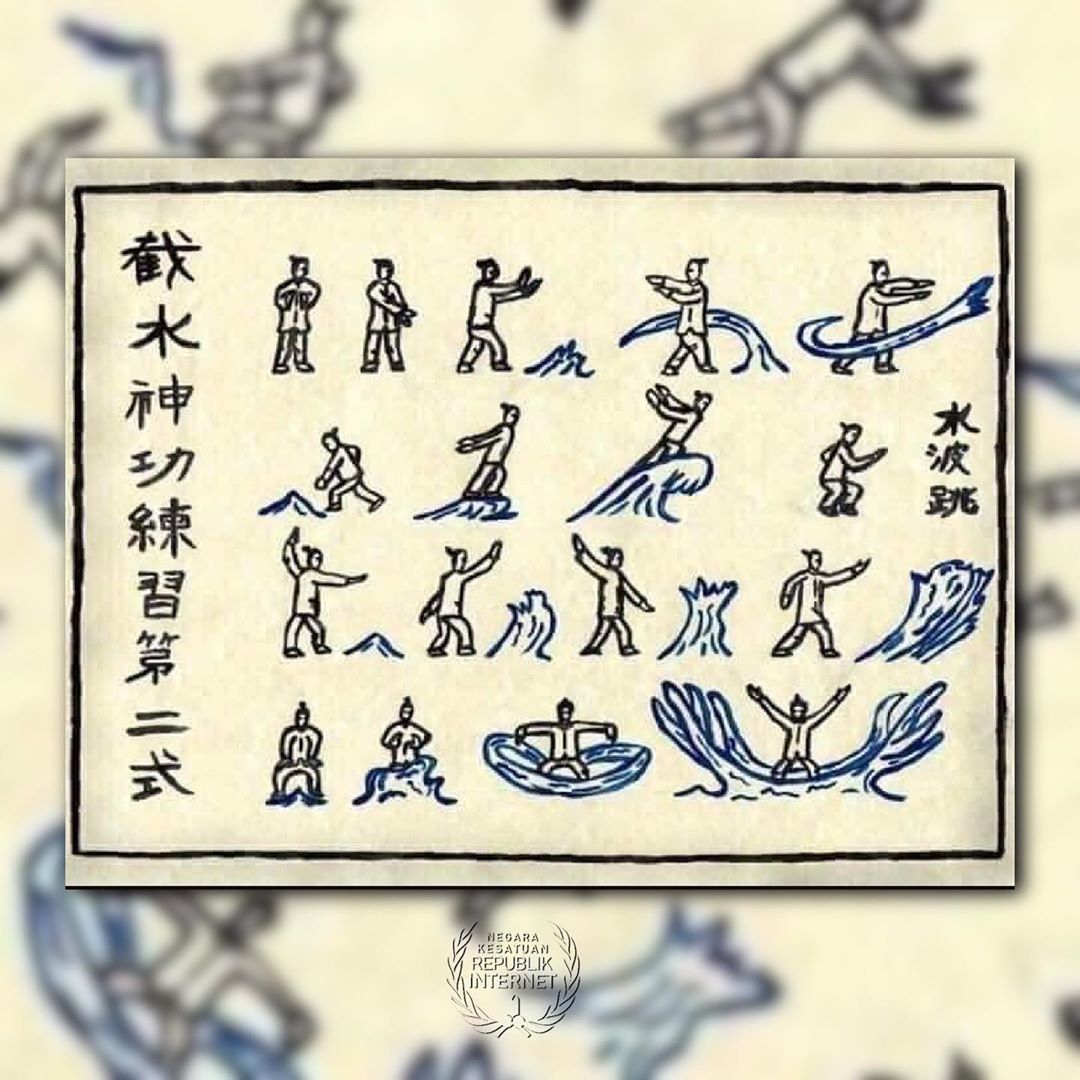 截水神功練習第二式
水波跳
NEGARA
KESATUAN
REPUBLIK
INTERNET